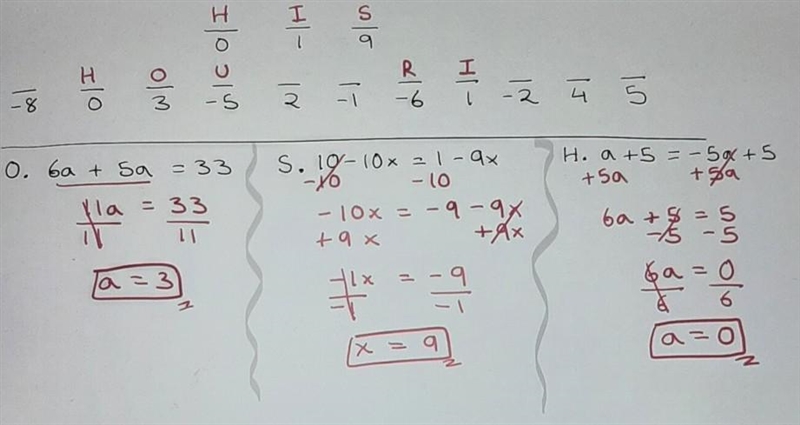 H I S
0 1 9
H O U R I
-8 0 3 -5 2 -1 -6 1 -2 4 5
O. 6a + 5a = 33
11a = 33
11 11
a = 3
S. 10 - 10x = 1 - 9x
-10 -10
-10x = -9 - 9x
+9x +9x
-1x = -9
-1 -1
x = 9
H. a + 5 = -5a + 5
+5a +5a
6a + 5 = 5
-5 -5
6a = 0
6 6
a = 0